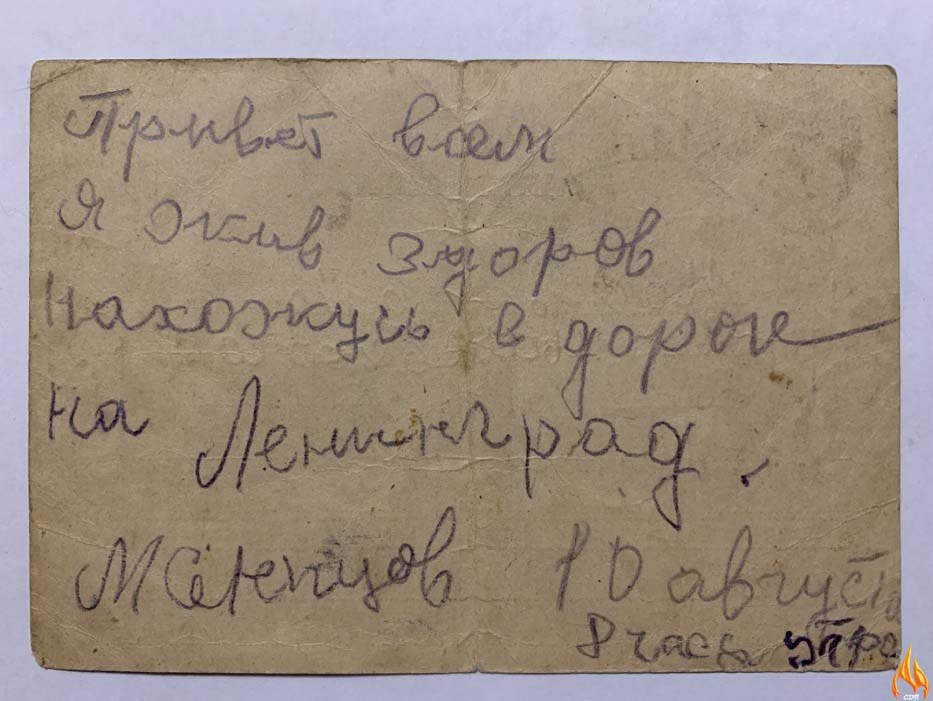 Привет всем
Я жив здоров
Нахожусь в дороге
на Ленинград.
10 август
8 часы утра